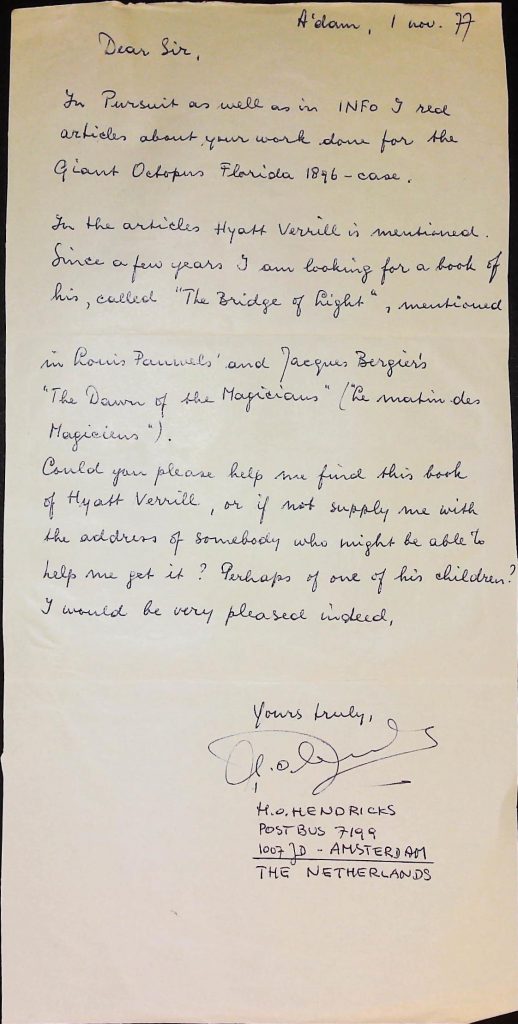 A'dam, 1 nov. 77
Dear Sir,
In Pursuit as well as in INFO I red
articles about your work done for the
Giant Octopus Florida 1896-case.
In the articles Hyatt Verrill is mentioned.
Since a few years I am looking for a book of
his, called "The Bridge of Light", mentioned
in Louis Pauwels' and Jacques Bergier's
"The Dawn of the Magicians" ("Le matin des
Magiciens").
Could you please help me find this book
of Hyatt Verrill, or if not supply me with
the address of somebody who might be able to
help me get it? Perhaps of one of his children?
I would be very pleased indeed,
Yours truly,
H.O. HENDRICKS
POSTBUS 7199
1007 JD - AMSTERDAM
THE NETHERLANDS